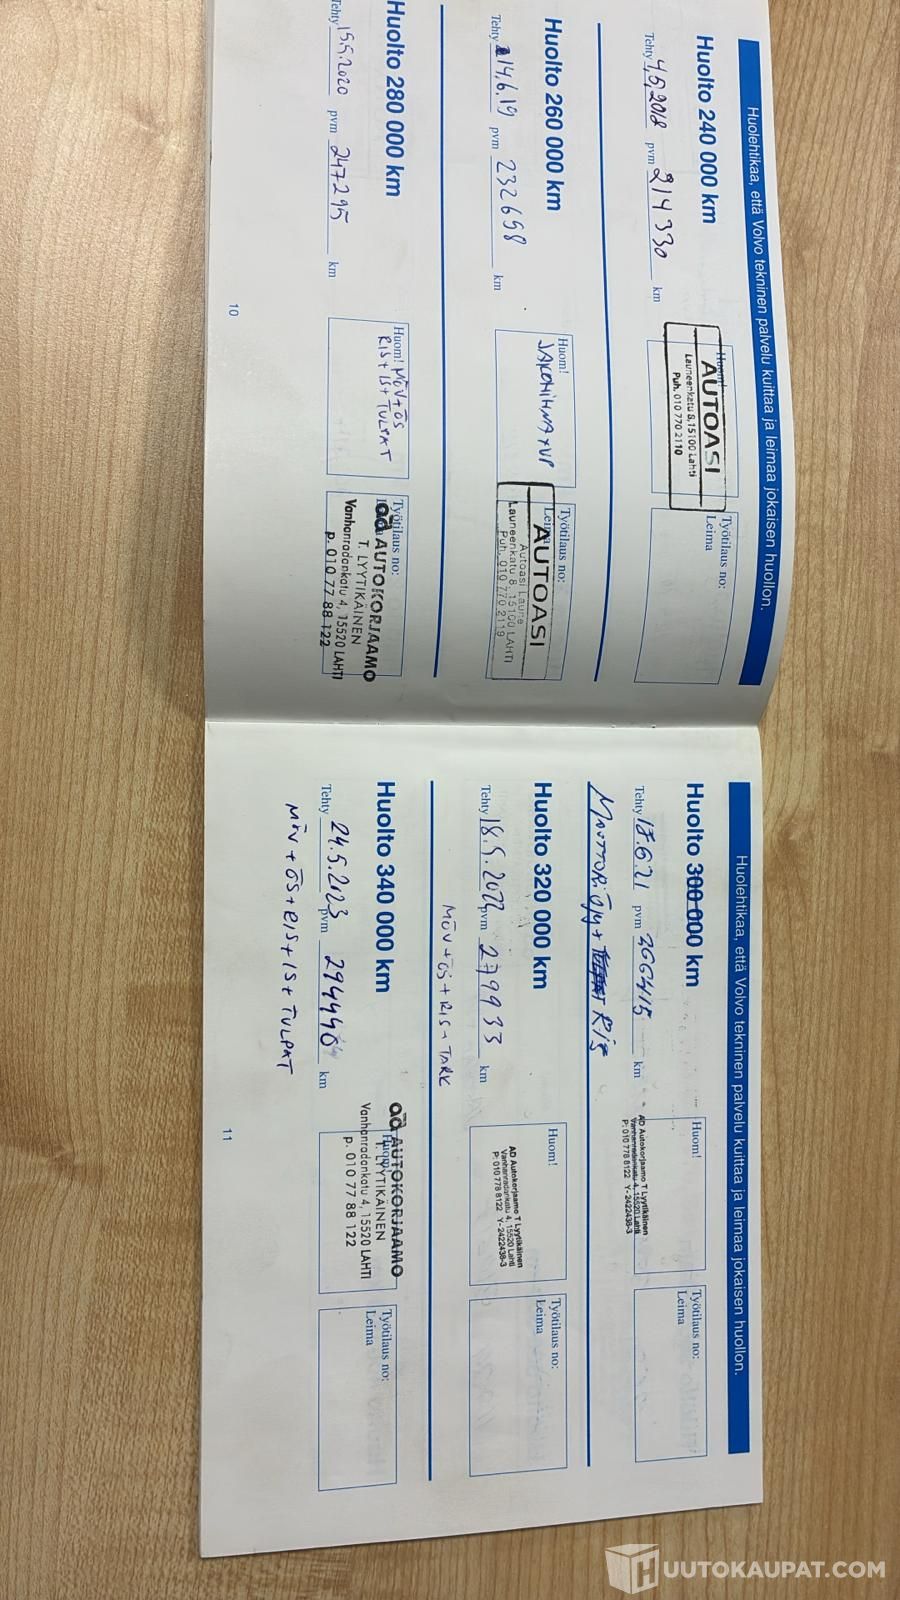 Huolehtikaa, että Volvo tekninen palvelu kuittaa ja leimaa jokaisen huollon.
Huolto 240 000 km
Tehty 4,5,2018 pvm 214 330 km
Huom!
AUTOASI
Launeenkatu 8, 15100 Lahti
Puh. 010 770 2110
Työtilaus no:
Leima
Huolto 260 000 km
Tehty 14.6.19 pvm 232658 km
Huom!
JAKOHIHNA+VP
Työtilaus no:
Leima
AUTOASI
Autoasi Laune
Launeenkatu 8, 15100 LAHTI
Puh. 010 770 2119
Huolto 280 000 km
Tehty 15.5.2020 pvm 247295 km
Huom! MÖV+ÖS
RIS+IS+TULPAT
Työtilaus no:
ad AUTOKORJAAMO
T. LYYTIKÄINEN
Vanhanradankatu 4, 15520 LAHTI
p. 010 77 88 122
10
Huolehtikaa, että Volvo tekninen palvelu kuittaa ja leimaa jokaisen huollon.
Huolto 300 000 km
Tehty 17.6.21 pvm 266415 km
MOOTTORIÖljy+ RIS
Huom!
AD Autokorjaamo T Lyytikäinen
Vanhanradankatu 4, 15520 Lahti
P: 010 778 8122 Y- 2422438-3
Työtilaus no:
Leima
Huolto 320 000 km
Tehty 18.5.2022 pvm 279933 km
MÖV+ÖS+RIS+TARK
Huom!
AD Autokorjaamo T Lyytikäinen
Vanhanradankatu 4, 15520 Lahti
P: 010 778 8122 Y- 2422438-3
Työtilaus no:
Leima
Huolto 340 000 km
Tehty 24.5.2023 pvm km
MÖV+ÖS+RIS+IS+TULPAT
Huom!
ad AUTOKORJAAMO
T. LYYTIKÄINEN
Vanhanradankatu 4, 15520 LAHTI
p. 010 77 88 122
Työtilaus no:
Leima
11
HUUTOKAUPAT.COM